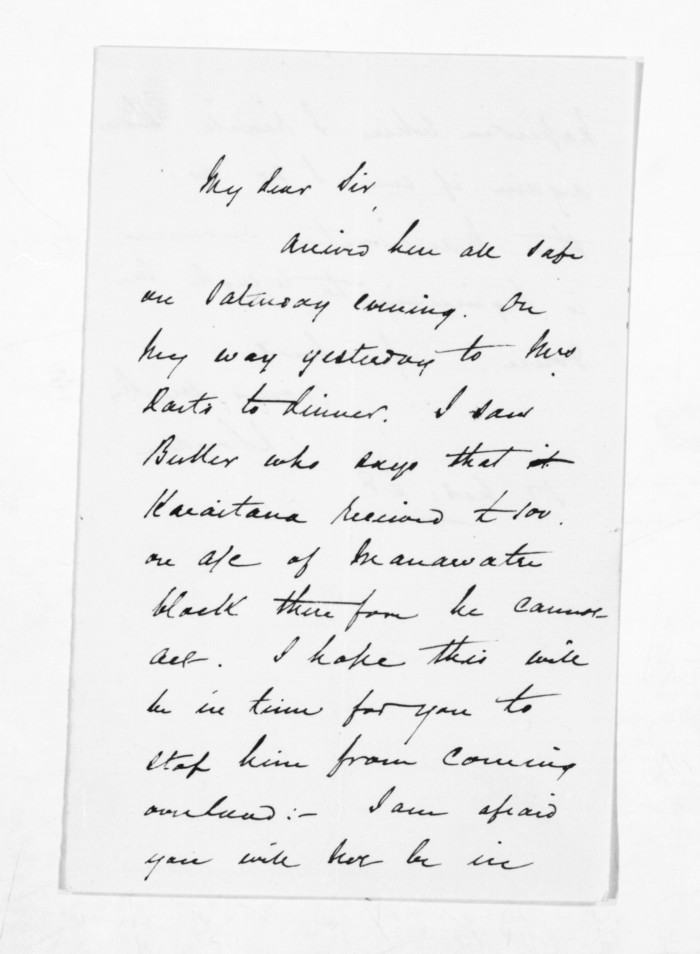 My dear Sir,
Arrived here all safe
on Saturday evening. On
my way yesterday to Mrs
to dinner. I saw
Butler who says that it
Karaitana received £100.
on a/c of Manawatu
block therefore he cannot
act. I hope this will
be in time for you to
stop him from coming
overland:- I am afraid
you will not be in